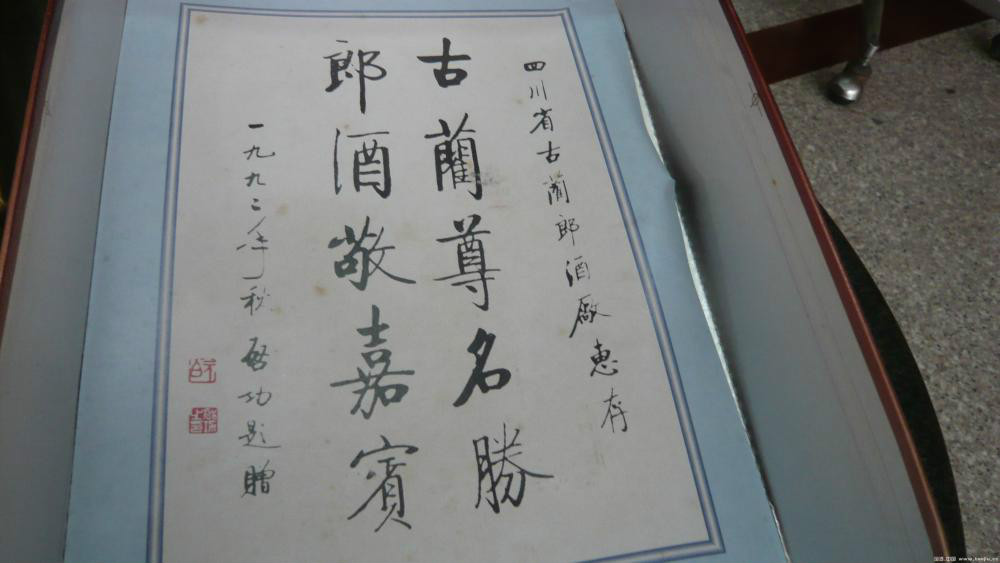 四川省古蔺郎酒厰惠存
古蔺尊名勝
郎酒敬嘉賓
一九九二年秋 啓功題贈